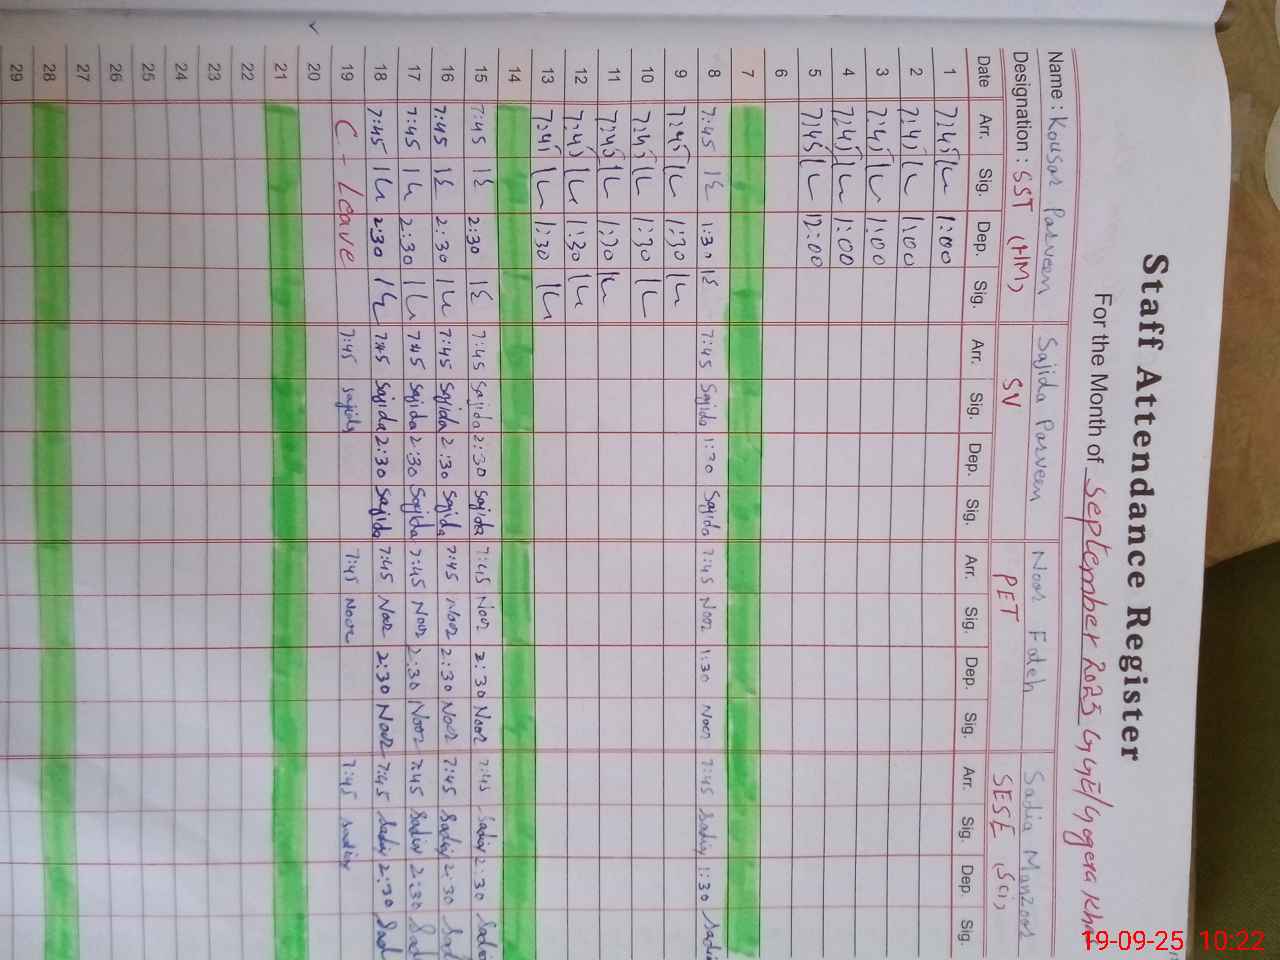 Staff Attendance Register
For the Month of September 2025
Name : Kousar Parveen Sajida Parveen Noor Fateh Sadia Manzoor
Designation : SST (HM) SV PET SESE (Sci)
Date Arr. Sig. Dep. Sig. Arr. Sig. Dep. Sig. Arr. Sig. Dep. Sig. Arr. Sig. Dep. Sig.
1 7:45 1:00
2 7:45 1:00
3 7:45 1:00
4 7:45 1:00
5 7:45 12:00
6
7
8 7:45 1:30 7:45 Sajida 1:30 Sajida 7:45 Noor 1:30 Noor 7:45 Sadia 1:30 Sadia
9 7:45 1:30
10 7:45 1:30
11 7:45 1:30
12 7:45 1:30
13 7:45 1:30
14
15 7:45 2:30 7:45 Sajida 2:30 Sajida 7:45 Noor 2:30 Noor 7:45 Sadia 2:30 Sadia
16 7:45 2:30 7:45 Sajida 2:30 Sajida 7:45 Noor 2:30 Noor 7:45 Sadia 2:30 Sad
17 7:45 2:30 7:45 Sajida 2:30 Sajida 7:45 Noor 2:30 Noor 7:45 Sadia 2:30 Sad
18 7:45 2:30 7:45 Sajida 2:30 Sajida 7:45 Noor 2:30 Noor 7:45 Sadia 2:30 Sad
19 C - Leave 7:45 Sajida 7:45 Noor 7:45 Sadia
20
21
22
23
24
25
26
27
28
29
19-09-25 10:22